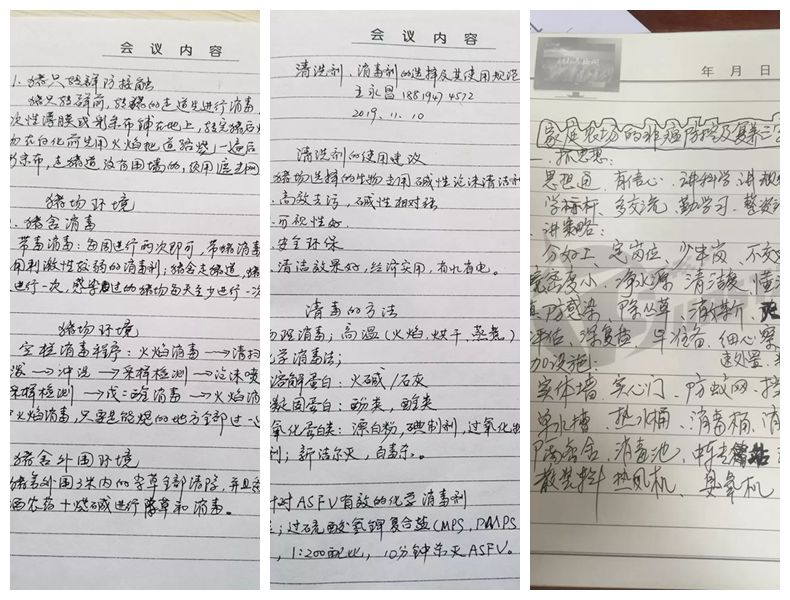 会议内容
1. 猪只转群防接触
猪只转群前,转猪的走道先进行消毒,
次性薄膜或彩条布铺在地上,转完猪后
白化前先用火焰把道路烧一遍后
条布,赶猪道没有围墙的,使用
猪场环境
猪舍消毒
带毒消毒:每周进行两次即可,带猪消毒
用刺激性较弱的消毒剂;猪舍走猪道
进行一次,感染过的猪场每天至少进行一次
猪场环境
空栏消毒程序:火焰消毒→清扫
泼→冲洗→采样检测→泡沫喷
采样检测→戊二醛消毒→火焰消
火焰消毒,只要是能烧的地方全部过一
猪舍外围环境
猪舍外围3米内的杂草全部清除,并且
洒农药+烧碱进行除草和消毒。
会议内容
清洗剂、消毒剂的选择及其使用规范
王永昌 18819474572
2019.11.10
清洗剂的使用建议
猪场选择的生物专用碱性泡沫清洁剂
高效去污,碱性相对弱
可视性好.
安全环保
清洁效果好,经济实用,有水有电。
消毒的方法
物理消毒;高温(火焰.烘干.蒸煮)
化学消毒法;
溶解蛋白:火碱/石灰
凝固蛋白:酚类,醛类
氧化蛋白类:漂白粉,碘制剂,过氧化
剂;新洁尔灭,百毒杀。
针对ASFV有效的化学消毒剂
;过硫酸氢钾复合盐(MPS,
,1:200配比,10分钟杀灭ASFV。
年 月 日
家庭农场的非瘟防控及复养三
一.抓思想:
思想通、有信心、讲科学、讲规
学标杆、多交流、勤学习、整
讲策略:
分好工、定岗位、少串岗、不交
密度小、净水源、清洁
防感染、除丛草、
评估、深复盘、早准备、细心察
速处置
加设施:
实体墙、实心门、防蚊网、
单水槽、热水桶、消毒桶、消
隔离舍、消毒池、中转站
散装料、热风机、臭氧机